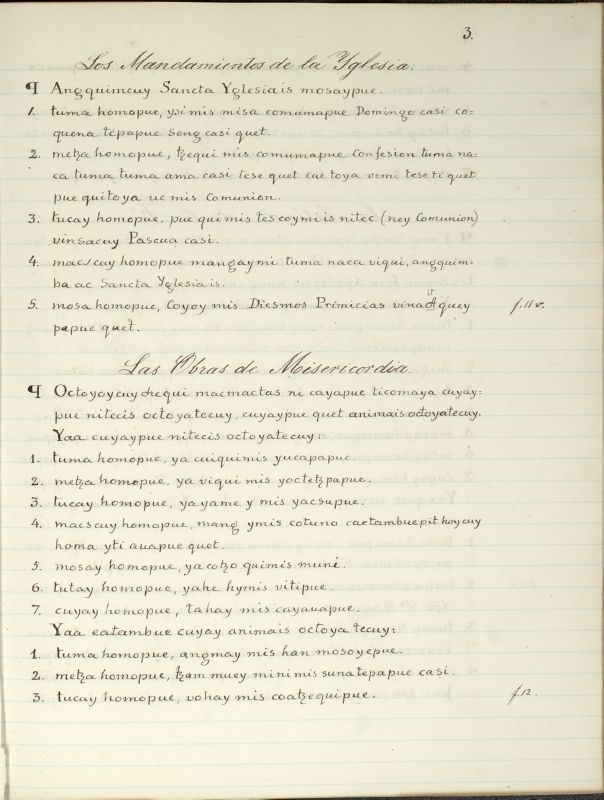 3.
Los Mandamientos de la Yglesia.
¶ Angquimcuy Sancta Yglesia is mosaypue.
1. tuma homopue, ysi mis misa comumapue Domingo casi co=
quena tepapue seng casi quet.
2. metza homopue, tzequi mis comumapue Confesion tuma na=
ca tuma tuma ama casi tese quet cae toya vemi tese ti quet
pue quitoya ue mis Comunion.
3. tucay homopue, pue qui mis tes coymi is nitec (ney Comunion)
vinsacuy Pascua casi.
4. macscuy homopue mangaymi tuma naca viqui, angquim=
ba ac Sancta Yglesia is.
5. mosa homopue, Coyoy mis Diesmos Primicias vina it A quey f. 11 v.
papue quet.
Las Obras de Misericordia.
¶ Octoyoycuy chequi macmactas ni cayapue ticomaya cuyay=
pue nitecis octoyatecuy, cuyaypue quet animais octoyatecuy.
Yaa cuyaypue nitecis octoyatecuy:
1. tuma homopue, ya cuiquimis yucapapue.
2. metza homopue, ya viqui mis yoctetzpapue.
3. tucay homopue, ya yame y mis yacsupue.
4. macscuy homopue, mang ymis cotuno caetambue pit hoycuy
homa yti auapue quet.
5. mosay homopue, ya cotzo quimis muni.
6. tutay homopue, yahe hymis vitipue.
7. cuyay homopue, tahay mis cayauapue.
Yaa eatambue cuyay animais octoya tecuy:
1. tuma homopue, angmay mis han mosoyepue.
2. metza homopue, tzam muey mini mis sunatepapue casi.
3. tucay homopue, vohay mis coatzequipue. f. 12.